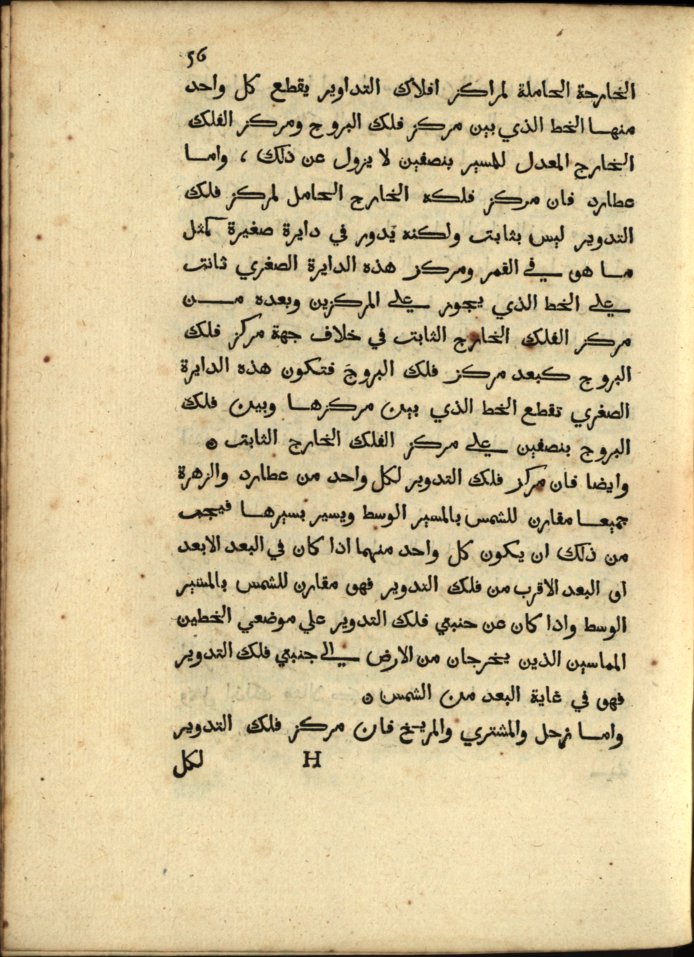 56
الخارجة الحاملة لمراكز افلاك التداوير يقطع كل واحد
منها الخط الذي بين مركز فلك البروج ومركز الفلك
الخارج المعدل للمسير بنصفين لا يزول عن ذلك ، واما
عطارد فان مركز فلكه الخارج الحامل لمركز فلك
التدوير ليس بثابت ولكنه يدور في دايرة صغيرة كمثل
ما هو في القمر ومركز هذه الدايرة الصغري ثابت
علي الخط الذي يجوز علي المركزين وبعده من
مركز الفلك الخارج الثابت في خلاف جهة مركز فلك
البروج كبعد مركز فلك البروج فتكون هذه الدايرة
الصغري تقطع الخط الذي بين مركزها وبين فلك
البروج بنصفين علي مركز الفلك الخارج الثابت ۞
وايضا فان مركز فلك التدوير لكل واحد من عطارد والزهرة
جميعا مقارن للشمس بالمسير الوسط ويسير بسيرها فيجب
من ذلك ان يكون كل واحد منهما اذا كان في البعد الابعد
او البعد الاقرب من فلك التدوير فهو مقارن للشمس بالمسير
الوسط واذا كان عن جنبتي فلك التدوير علي موضعي الخطين
المماسين الذين يخرجان من الارض الي جنبتي فلك التدوير
فهو في غاية البعد من الشمس ۞
واما زحل والمشتري والمريخ فان مركز فلك التدوير
H لكل